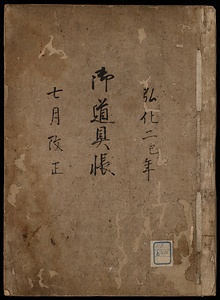 弘化二巳年
御道具帳
七月改正